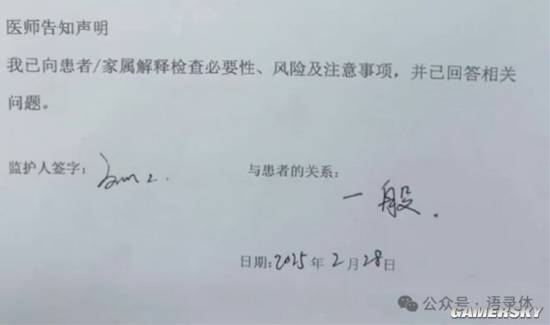 医师告知声明
我已向患者/家属解释检查必要性、风险及注意事项，并已回答相关
问题。
监护人签字：
与患者的关系：
一般.
日期:2025年2月28日
公众号·语录体
GAMERSKY